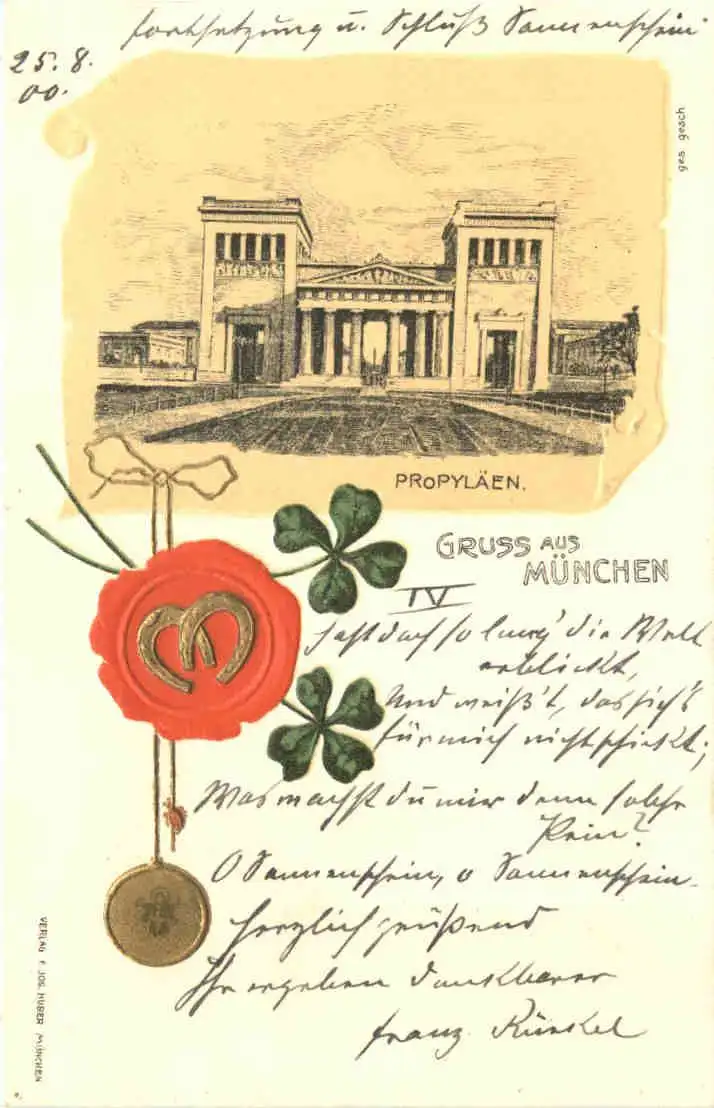 Fortsetzung u. Schluß Sonnenschein
25. 8.
00.
ges. gesch
PROPYLÄEN.
GRUSS AUS
MÜNCHEN
IV
doch so lang' die Welt
erblickt,
Und weißt, daß sich's
für mich nicht schickt;
Was machst du mir denn solche
Pein?
O Sonnenschein, o Sonnenschein.
Herzlich grüßend
Ihr ergeben dankbarer
Franz
VERLAG F. JOS. HUBER MÜNCHEN